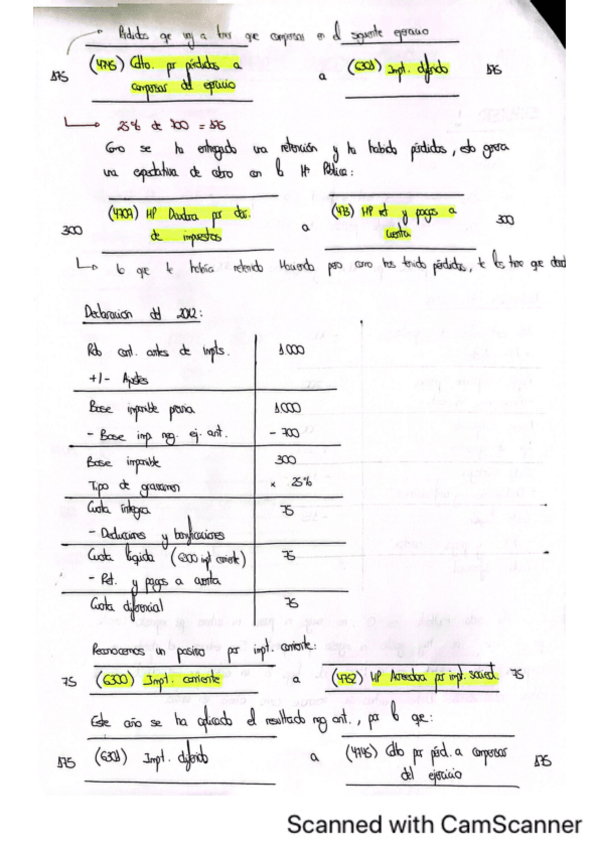 Pérdidas que voy a tener que compensar en el siguiente ejercicio
175 (4745) Cdto. por pérdidas a compensar del ejercicio a (6301) Impt. diferido 175
25% de 700 = 175
Como se ha entregado una retención y ha habido pérdidas, esto genera
una expectativa de cobro con la Hª Pública:
300 (4709) HP Deudora por dev. de impuestos a (473) HP ret. y pagos a cuenta 300
lo que te había retenido Hacienda pero como has tenido pérdidas, te los tiene que
Declaración del 2012:
Rdo cont. antes de impts. 1.000
+/- Ajustes
Base imponible previa 1.000
- Base imp. neg. ej. ant. - 700
Base imponible 300
Tipo de gravamen × 25%
Cuota íntegra 75
- Deducciones y bonificaciones
Cuota líquida (6300 impt corriente) 75
- Ret. y pagos a cuenta
Cuota diferencial 75
Reconocemos un pasivo por impt. corriente:
75 (6300) Impt. corriente a (4752) HP Acreedora por impt. socied. 75
Este año se ha aplicado el resultado neg ant., por lo que:
175 (6301) Impt. diferido a (4745) Cdto por pérd. a compensar del ejercicio 175
Scanned with CamScanner